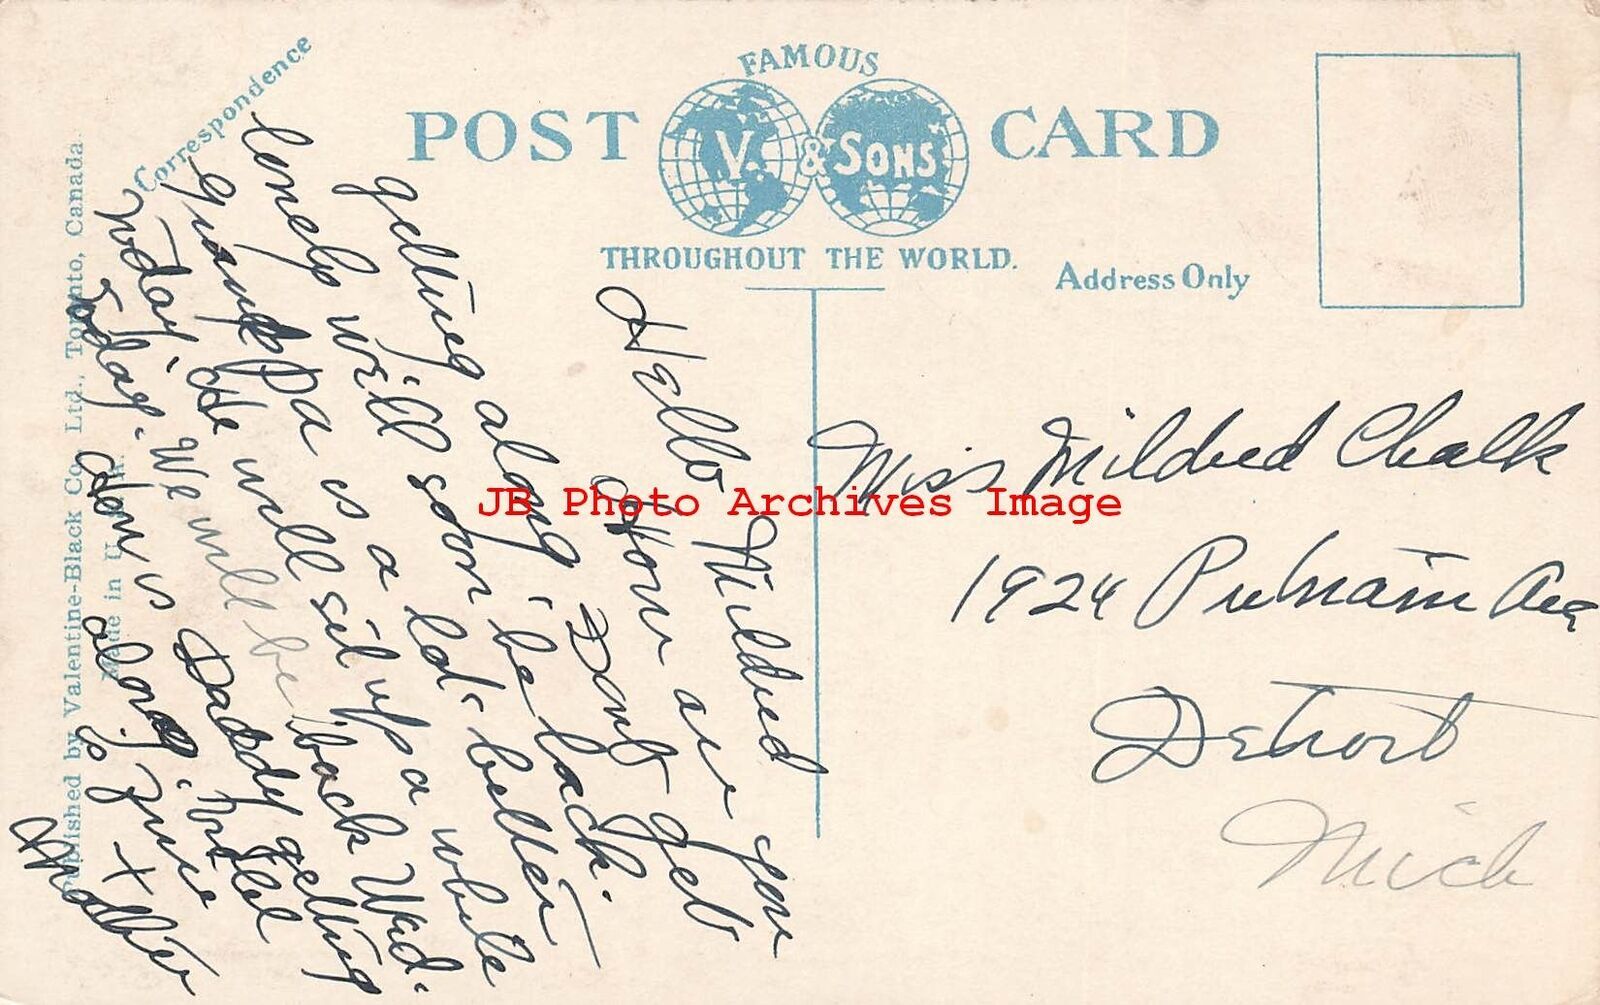 Correspondence
FAMOUS
POST CARD
V. & SONS
THROUGHOUT THE WORLD.
Address Only
Published by Valentine-Black Co. Ltd., Toronto, Canada.
Made in U
Hello Mildred
How are you
getting along. Dont get
lonely we'll soon be back.
Grand Pa is a lot better
today. He will sit up a while
today. We will be back Wed.
How is Daddy getting
along.
fine
Mother
Miss Mildred Chalk
1924 Putnam Ave
Detroit
Mich
JB Photo Archives Image